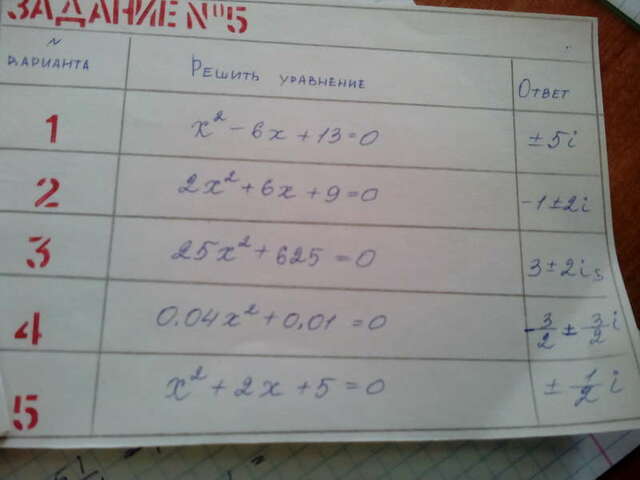 ЗАДАНИЕ №5
N ВАРИАНТА РЕШИТЬ УРАВНЕНИЕ ОТВЕТ
1 x² - 6x + 13 = 0 ± 5i
2 2x² + 6x + 9 = 0 -1 ± 2i
3 25x² + 625 = 0 3 ± 2i
4 0.04x² + 0.01 = 0 -3/2 ± 3/2 i
5 x² + 2x + 5 = 0 ± 1/2 i